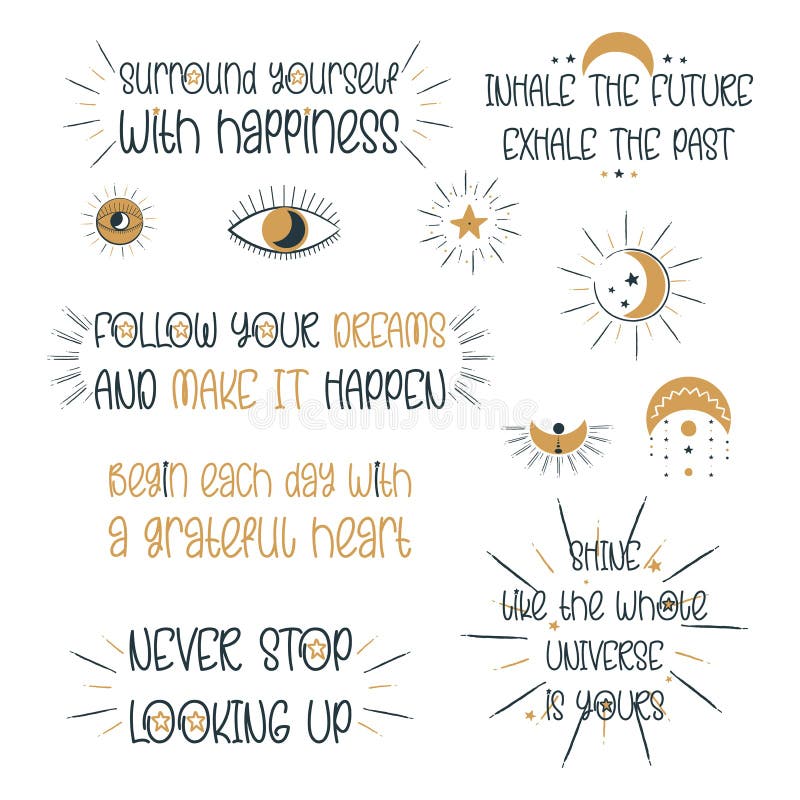 surround yourself
with happiness
INHALE THE FUTURE
EXHALE THE PAST
FOLLOW YOUR DREAMS
AND MAKE IT HAPPEN
Begin each day with
a grateful heart
SHINE
like the whole
UNIVERSE
is YOURS
NEVER STOP
LOOKING UP
dreamstime